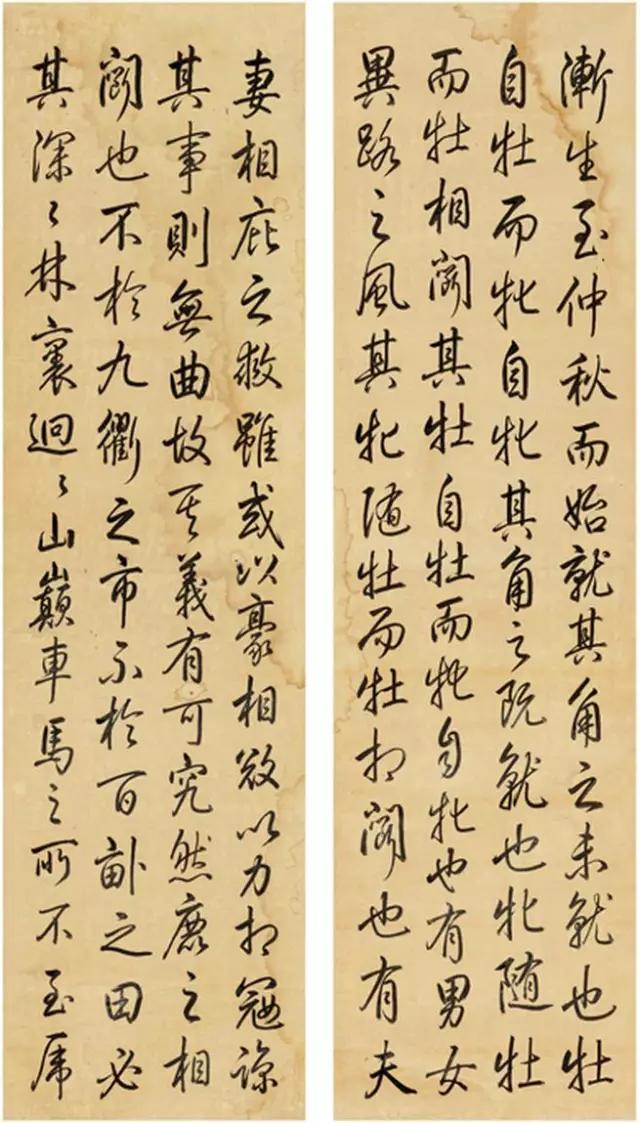 漸生至仲秋而始就其角之未就也牡
自牡而牝自牝其角之既就也牝随牡
而牡相闘其牡自牡而牝自牝也有男女
異路之風其牝随牡而牡相闘也有夫
妻相庇之救雖或以豪相以力相寇諒
其事則無曲故其義有可究然鹿之相
闘也不於九衢之市不於百畝之田必
其深々林裏迥々山巔車馬之所不至虎